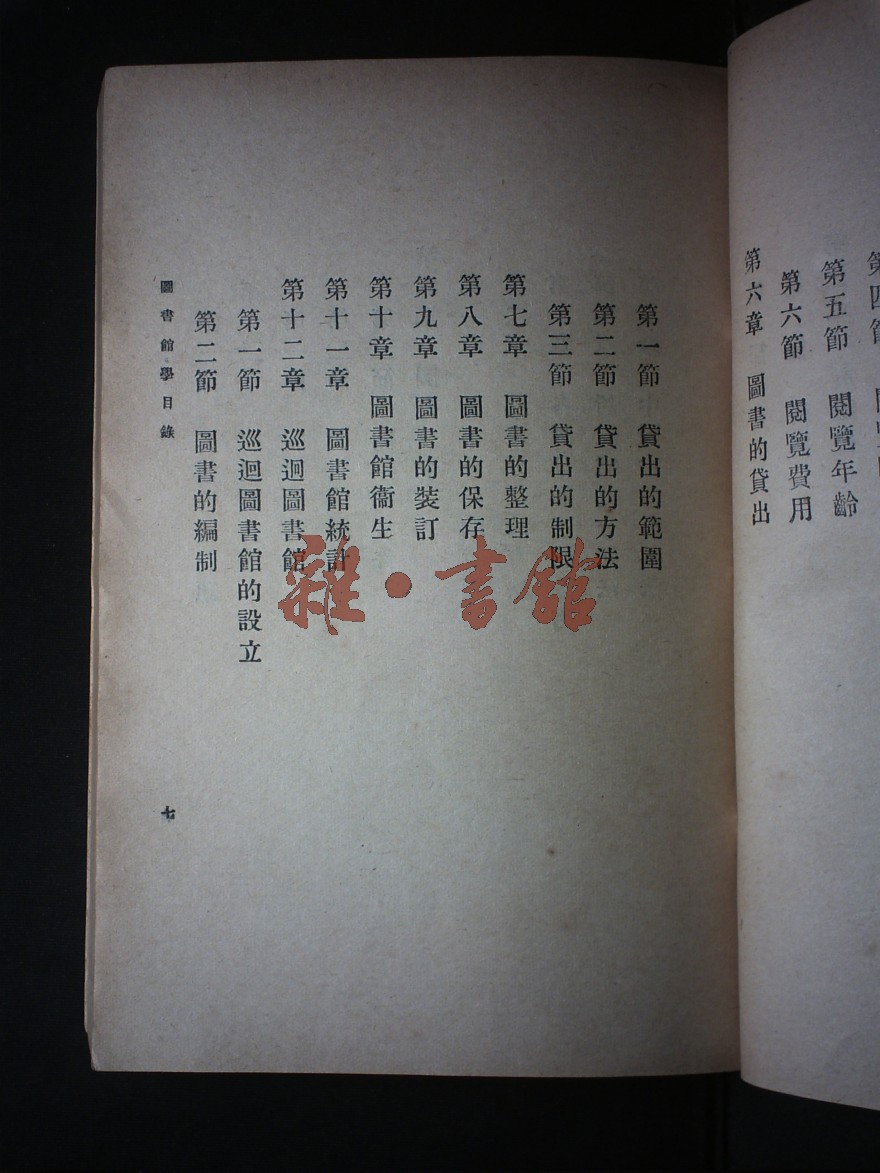 第五節　閱覽年齡
第六節　閱覽費用
第六章　圖書的貸出
第一節　貸出的範圍
第二節　貸出的方法
第三節　貸出的制限
第七章　圖書的整理
第八章　圖書的保存
第九章　圖書的裝訂
第十章　圖書館衞生
第十一章　圖書館統計
第十二章　巡迴圖書館
第一節　巡迴圖書館的設立
第二節　圖書的編制
圖書館學目錄
七
雜·書館